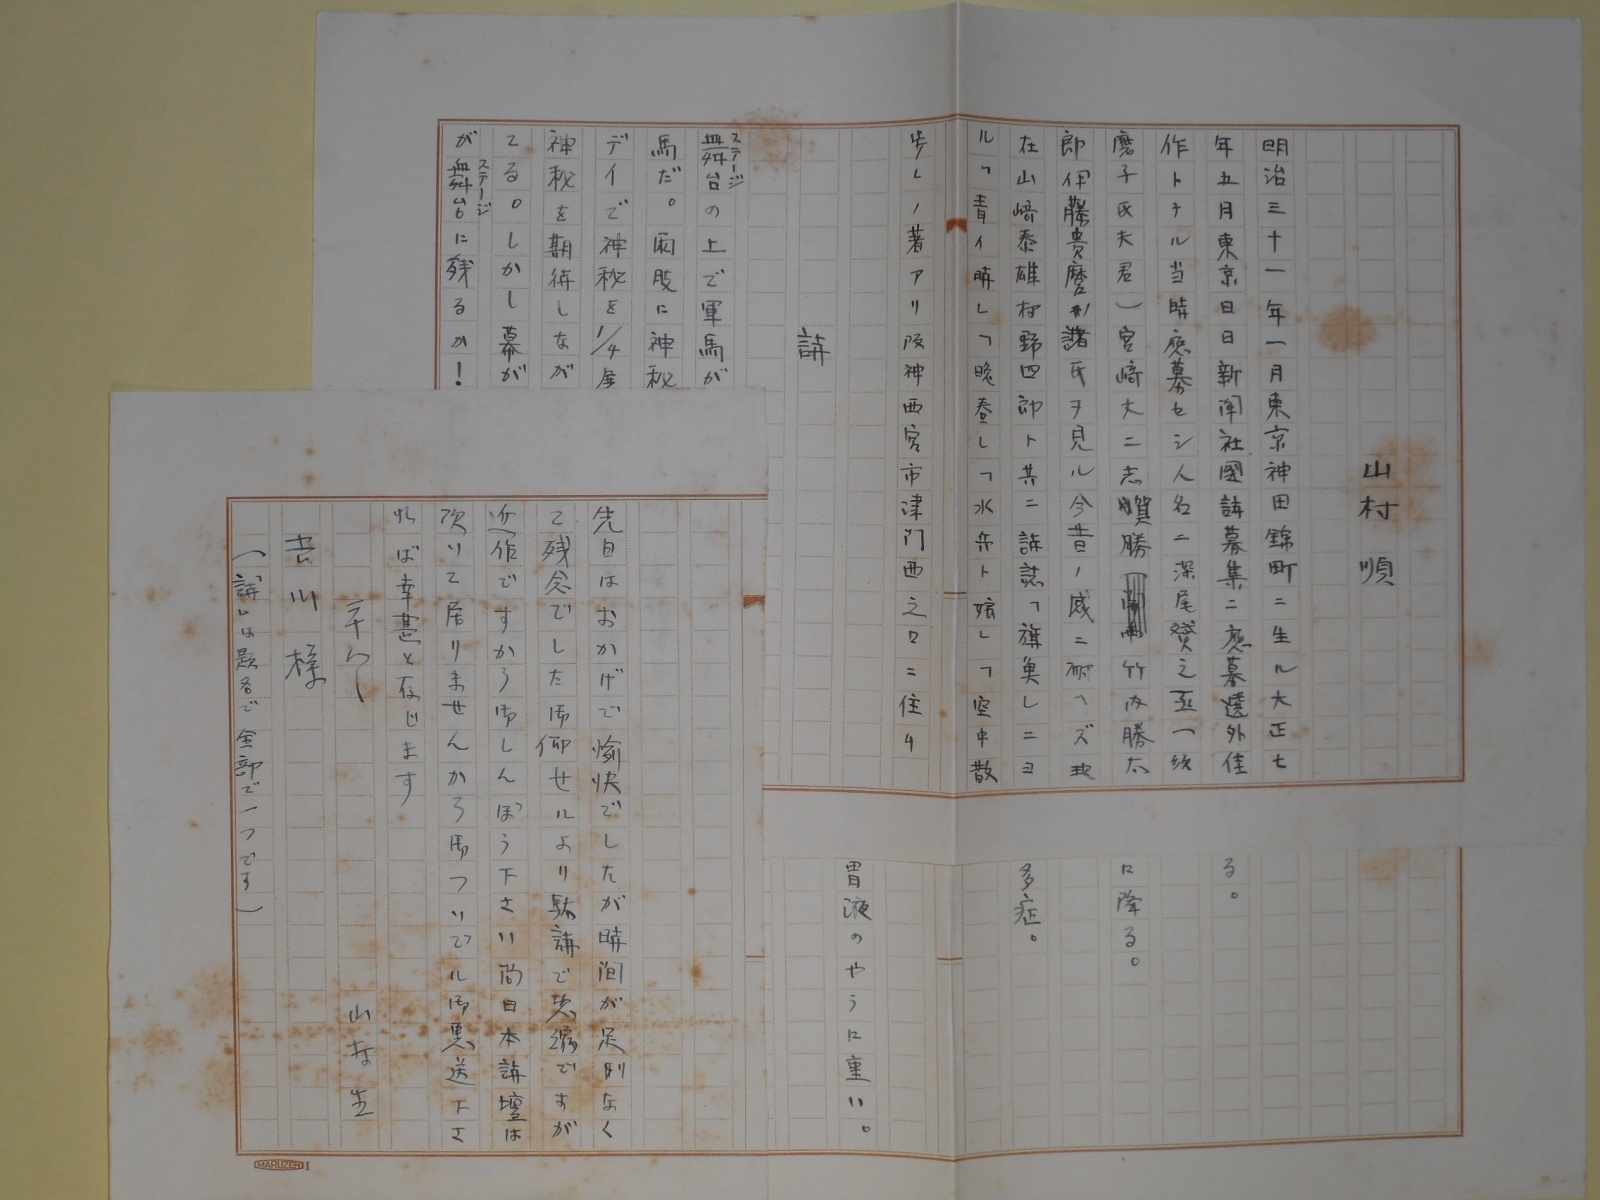 山村 順
明治三十一年一月東京神田錦町ニ生ル大正七
年五月東京日日新聞社國詩募集ニ應募選外佳
作トナル当時應募セシ人名ニ深尾贇之丞(
磨子氏夫君)宮崎丈ニ志賀勝 竹内勝太
郎伊藤貴麿 諸氏ヲ見ル今昔ノ感ニ耐ヘズ現
在山崎泰雄村野四郎ト共ニ詩誌「旗魚」ニヨ
ル「青イ時」「晩春」「水兵ト娘」「空中散
歩」ノ著アリ阪神西宮市津門西之口ニ住ム
詩
舞台の上で軍馬が
ステージ
馬だ。両股に神秘
デイで神秘を1/4
神秘を期待しなが
てる。しかし幕が
が舞台に残るか!
ステージ
る。
に降る。
多症。
胃液のやうに重い。
先日はおかげで愉快でしたが時間が足りなく
て残念でした御仰せにより駄詩で恐縮ですが
近作ですから御しんぼう下さい尚日本詩壇は
頂いて居りませんから御ついでに御恵送下さ
れば幸甚と存じます
山村生
吉川様
(「詩」は題名で全部で一つです)
MARUZEN I